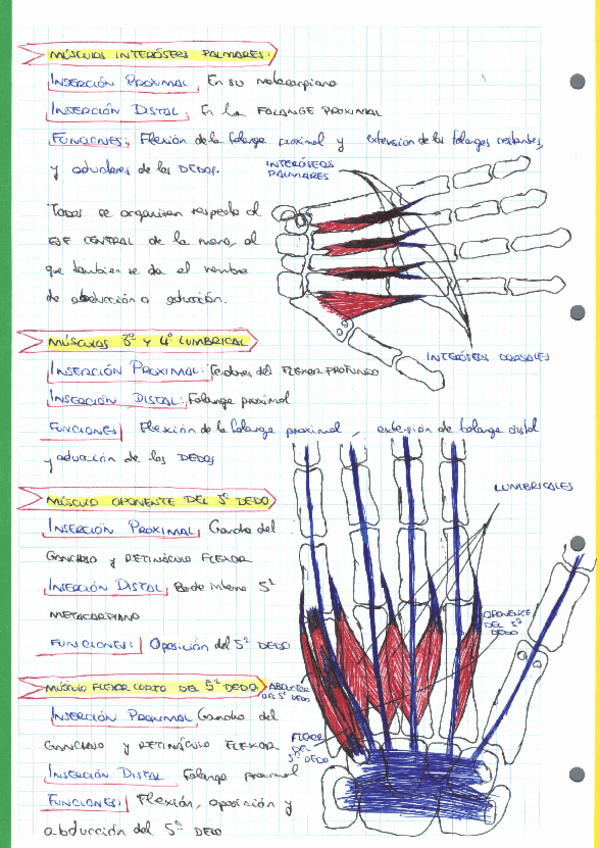 MÚSCULOS INTERÓSEOS PALMARES:
INSERCIÓN PROXIMAL: En su metacarpiano
INSERCIÓN DISTAL: En la FALANGE PROXIMAL
FUNCIONES: Flexión de la falange proximal y extensión de las falanges restantes,
y aductores de los DEDOS.
INTERÓSEOS
PALMARES
Todos se organizan respecto al
EJE CENTRAL de la mano, al
que también se da el nombre
de abducción o aducción.
INTERÓSEOS DORSALES
MÚSCULOS 3º Y 4º LUMBRICAL
INSERCIÓN PROXIMAL: Tendones del FLEXOR PROFUNDO
INSERCIÓN DISTAL: Falange proximal
FUNCIONES: Flexión de la falange proximal, extensión de falange distal
y aducción de los DEDOS
LUMBRICALES
MÚSCULO OPONENTE DEL 5º DEDO
INSERCIÓN PROXIMAL: Gancho del
GANCHOSO y RETINÁCULO FLEXOR
INSERCIÓN DISTAL: Borde interno 5º
METACARPIANO
FUNCIONES: Oposición del 5º DEDO
OPONENTE
DEL 5º
DEDO
MÚSCULO FLEXOR CORTO DEL 5º DEDO
ABDUCTOR
DEL 5º DEDO
INSERCIÓN PROXIMAL: Gancho del
GANCHOSO y RETINÁCULO FLEXOR
INSERCIÓN DISTAL: Falange proximal
FUNCIONES: Flexión, oposición y
abducción del 5º DEDO
FLEXOR
DEL
5º DEDO